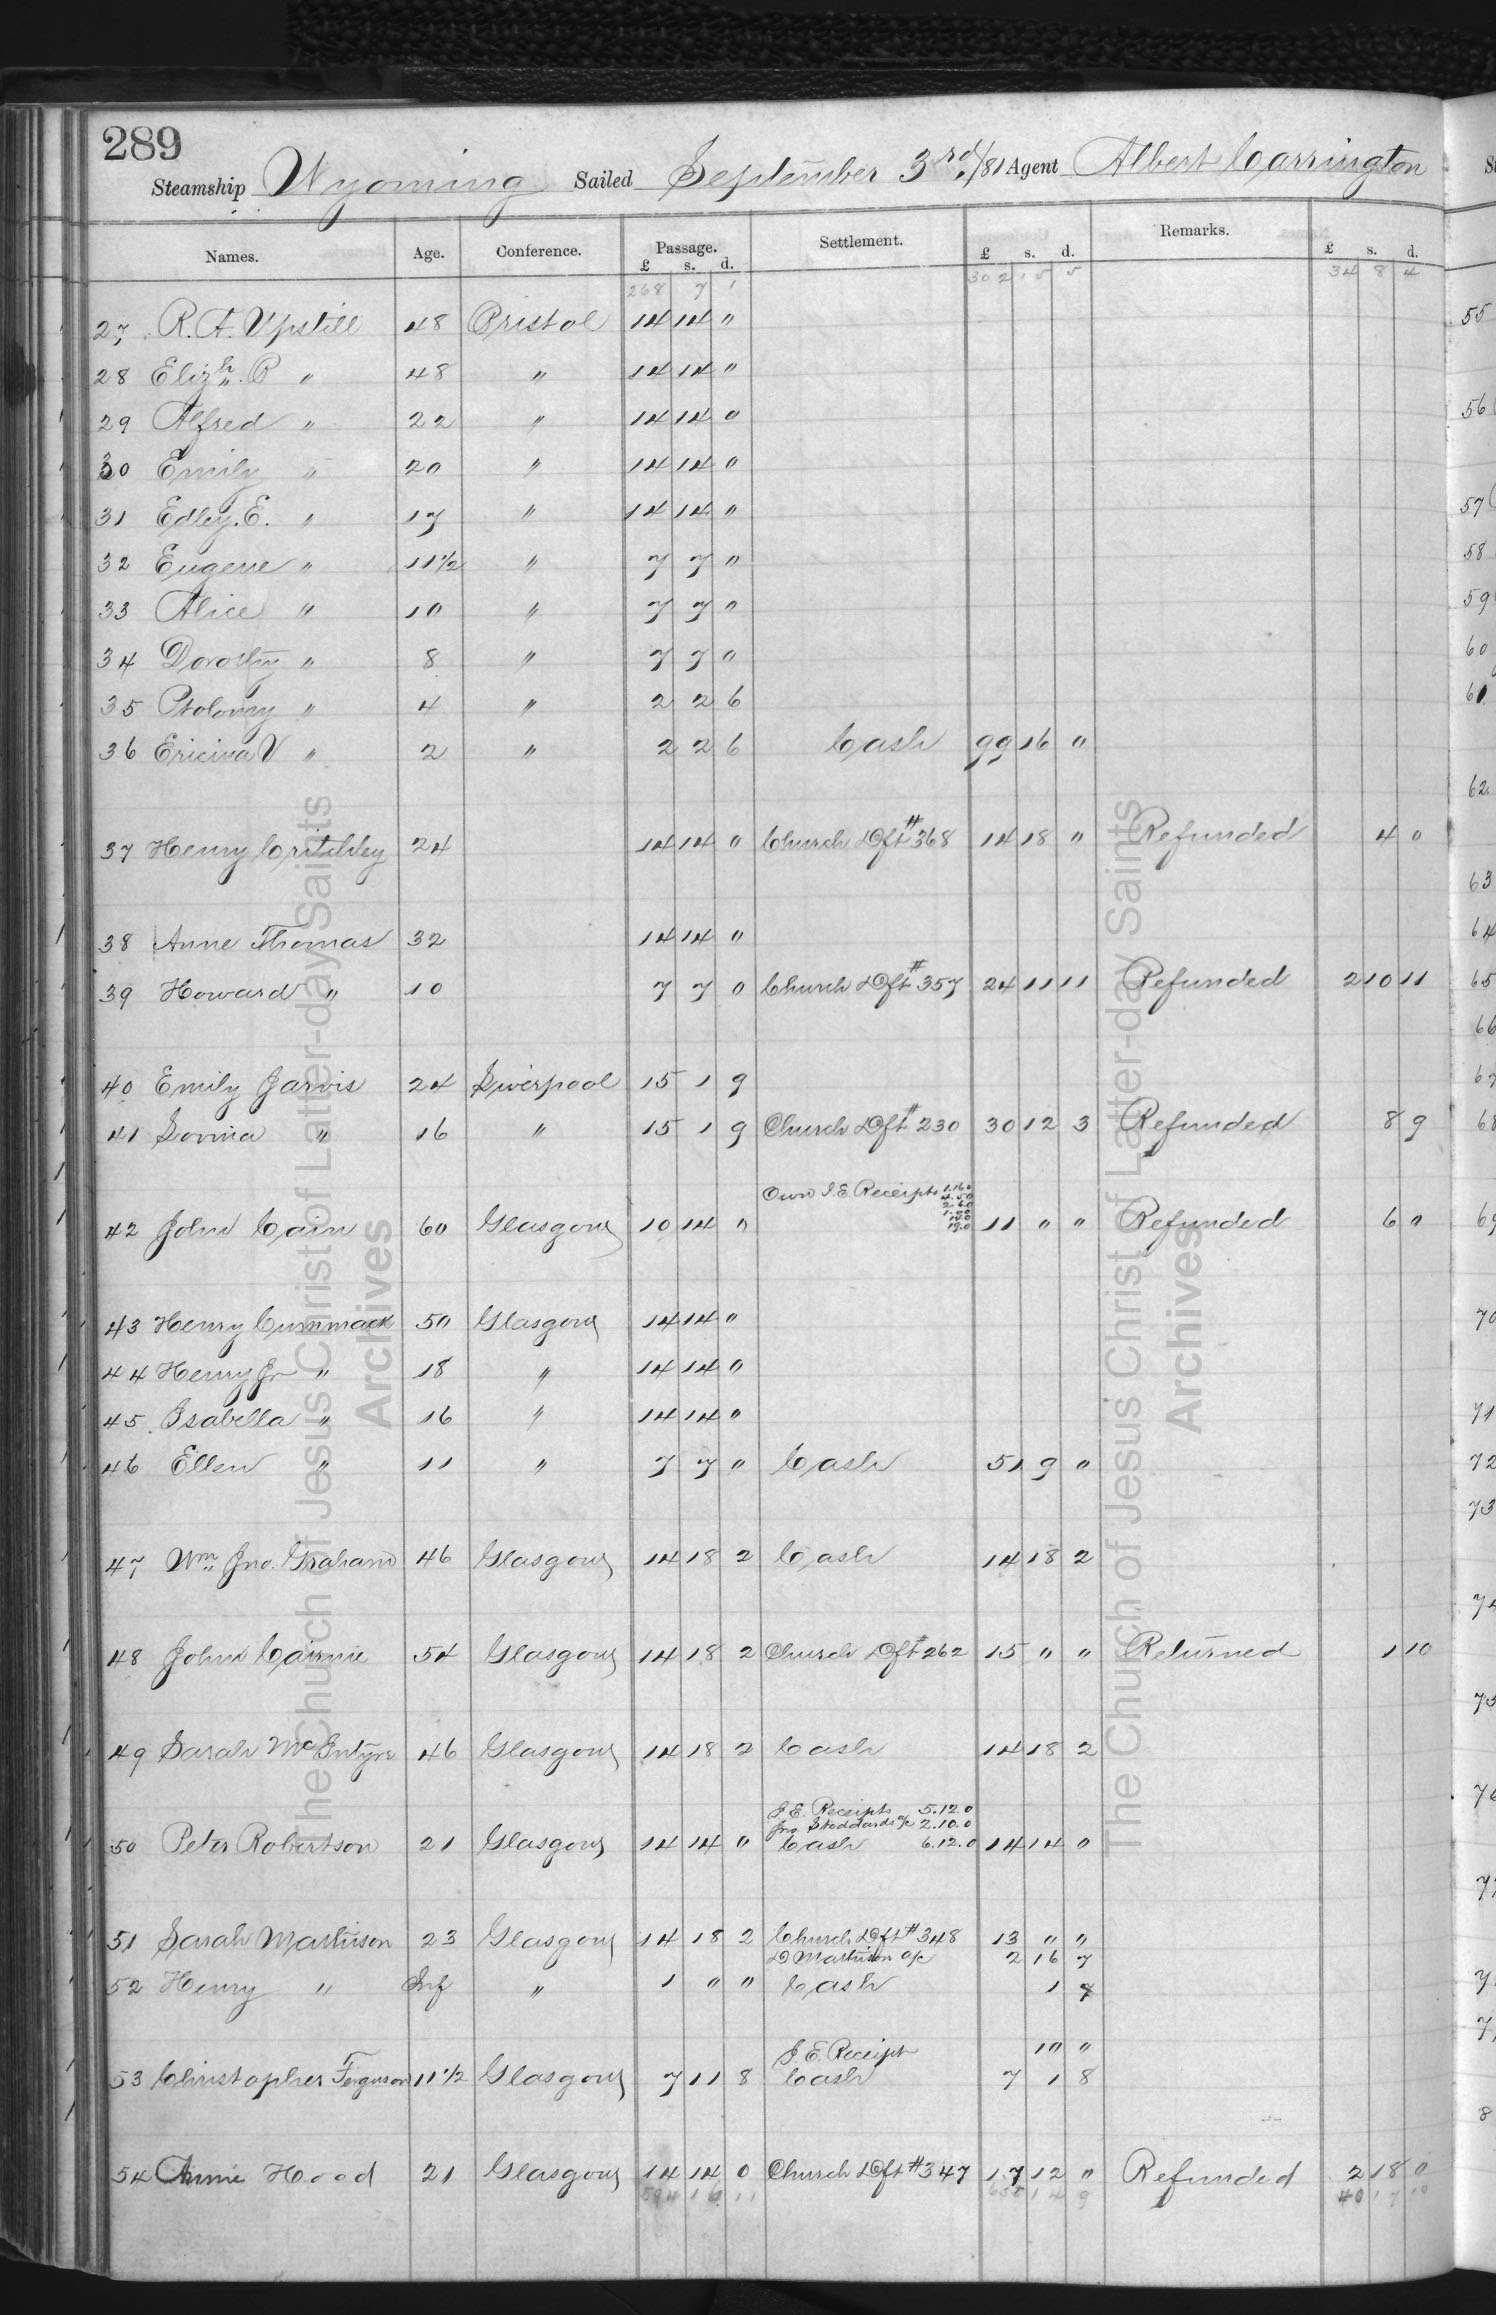 289
Steamship Wyoming Sailed September 3rd/81 Agent Albert Carrington
Names. Age. Conference. Passage. £ s. d. Settlement. £ s. d. Remarks. £ s. d.
268 7 1 302 15 5 34 8 4
27 R. A. Upstill 48 Bristol 14 14 "
28 Elizh. B " 48 " 14 14 "
29 Alfred " 22 " 14 14 0
30 Emily " 20 " 14 14 0
31 Edley. E. " 17 " 14 14 "
32 Eugene " 11 1/2 " 7 7 0
33 Alice " 10 " 7 7 0
34 Dorothy " 8 " 7 7 0
35 Ptolomy " 4 " 2 2 6
36 Ericina V " 2 " 2 2 6 Cash 99 16 0
37 Henry Critchley 24 14 14 0 Church Dft #368 14 18 " Refunded 4 0
38 Anne Thomas 32 14 14 0
39 Howard " 10 7 7 0 Church Dft #357 24 11 11 Refunded 2 10 11
40 Emily Jarvis 24 Liverpool 15 1 9
41 Lovina " 16 " 15 1 9 Church Dft # 230 30 12 3 Refunded 8 9
Own I. E Receipts
42 John Cain 60 Glasgow 10 14 0 11 " " Refunded 6 0
43 Henry Cummack 50 Glasgow 14 14 0
44 Henry Jr " 18 " 14 14 0
45 Isabella " 16 " 14 14 "
46 Ellen " 11 " 7 7 0 Cash 51 9 0
47 Wm. Jno. Graham 46 Glasgow 14 18 2 Cash 14 18 2
48 John Cairnie 54 Glasgow 14 18 2 Church Dft #262 15 " " Returned 1 10
49 Sarah McIntyre 46 Glasgow 14 18 2 Cash 14 18 2
I. E. Receipts 5.12.0
Jno Stoddards a/c 2.10.0
50 Peter Robertson 21 Glasgow 14 14 0 Cash 6.12.0 14 14 0
51 Sarah Mathison 23 Glasgow 14 18 2 Church Dft #348 13 " "
D Mathison a/c 2 16 7
52 Henry " Inf " 1 " " Cash 1 7
I. E. Receipt 10 "
53 Christopher Ferguson 11 1/2 Glasgow 7 11 8 Cash 7 1 8
54 Annie Hood 21 Glasgow 14 14 0 Church Dft #347 17 12 0 Refunded 2 18 0
40 17 10
The Church of Jesus Christ of Latter-day Saints
Archives
The Church of Jesus Christ of Latter-day Saints
Archives
55
56
57
58
59
60
61
62
63
64
65
66
67
68
69
70
71
72
73
74
75
76